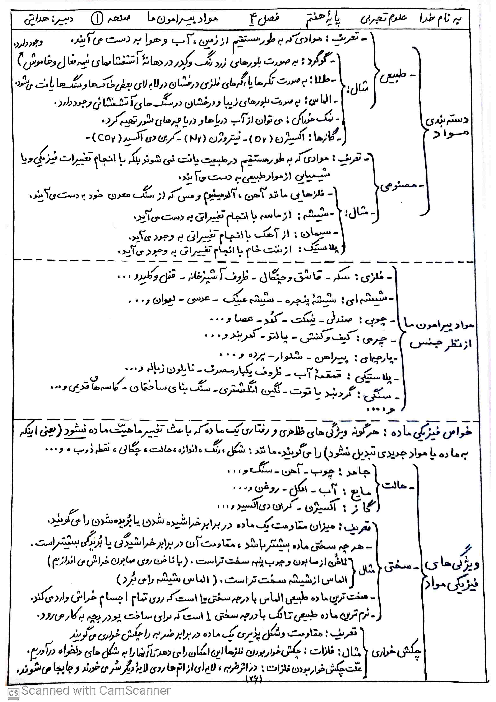 به نام خدا علوم تجربی پایه هفتم فصل ۴ مواد پیرامون ما صفحه ۱ دبیر: هدایتی
دسته بندی مواد
طبیعی
- تعریف: موادی که به طور مستقیم از زمین، آب و هوا به دست می آیند.
مثال:
- گوگرد: به صورت بلورهای زرد رنگ و کدر در دهانهٔ آتشفشان های نیمه فعال و خاموش وجود دارد
- طلا: به صورت تکه ها یا رگه های فلزی درخشان در لابه لای بعضی خاک ها و سنگ ها یافت می شود.
- الماس: به صورت بلورهای زیبا و درخشان در سنگ های آتشفشانی وجود دارد.
- نمک خوراکی: می توان از آب دریاها و دریاچه های شور تهیه کرد.
- گازها: اکسیژن (O2) - نیتروژن (N2) - کربن دی اکسید (CO2) -
مصنوعی
- تعریف: موادی که به طور مستقیم در طبیعت یافت نمی شوند بلکه با انجام تغییرات فیزیکی و یا
شیمیایی از مواد طبیعی به دست می آیند.
مثال:
- فلزهایی مانند آهن، آلومینیوم و مس که از سنگ معدن خود به دست می آیند.
- شیشه: از ماسه با انجام تغییراتی به دست می آید.
- سیمان: از آهک با انجام تغییراتی به وجود می آید.
- پلاستیک: از نفت خام با انجام تغییراتی به وجود می آید.
مواد پیرامون ما از نظر جنس
- فلزی: سکه - قاشق و چنگال - ظروف آشپزخانه - قفل و کلید و...
- شیشه ای: شیشه پنجره - شیشه عینک - عدسی - لیوان و...
- چوبی: صندلی - نیمکت - کمد - عصا و...
- چرمی: کیف و کفش - پالتو - کمربند و...
- پارچه ای: پیراهن - شلوار - پرده و...
- پلاستیکی: قمقمهٔ آب - ظروف یکبار مصرف - نایلون زباله و...
- سنگی: گردنبند یاقوت - نگین انگشتری - سنگ بنای ساختمان - کاسه های قدیمی و...
و...
خواص فیزیکی ماده: هرگونه ویژگی های ظاهری و رفتاری یک ماده که باعث تغییر ماهیت ماده نشود (یعنی اینکه
به ماده یا مواد جدیدی تبدیل نشود) را می گویند. مانند: شکل، رنگ، اندازه، حالت، چگالی، نقطه ذوب، و...
ویژگی های فیزیکی مواد
- حالت
جامد: چوب - آهن - سنگ و...
مایع: آب - الکل - روغن و...
گاز: اکسیژن - کربن دی اکسید و...
- سختی
تعریف: میزان مقاومت یک ماده در برابر خراشیده شدن یا بریده شدن را می گویند.
- هر چه سختی ماده بیشتر باشد، مقاومت آن در برابر خراشیدگی یا بریدگی بیشتر است.
مثال
ناخن از صابون و چوب پنبه سخت تر است. (با ناخن روی صابون خراش می اندازیم)
الماس از شیشه سخت تر است. (الماس شیشه را می بُرد)
- سخت ترین ماده طبیعی الماس با درجه سختی ۱۰ است که روی تمام اجسام خراش وارد می کند.
- نرم ترین ماده طبیعی تالک با درجه سختی ۱ است که برای ساخت پودر بچه به کار می رود.
چکش خواری
تعریف: مقاومت و شکل پذیری یک ماده در برابر ضربه را چکش خواری می گویند
مثال: فلزات: چکش خوار بودن فلزها این امکان را می دهد که آنها را به شکل های دلخواه درآوریم.
علت چکش خوار بودن فلزات: در اثر ضربه، لایه ای از اتم ها روی لایهٔ دیگر سُر می خورند و جابجا می شوند.
(۲۶)
CS Scanned with CamScanner